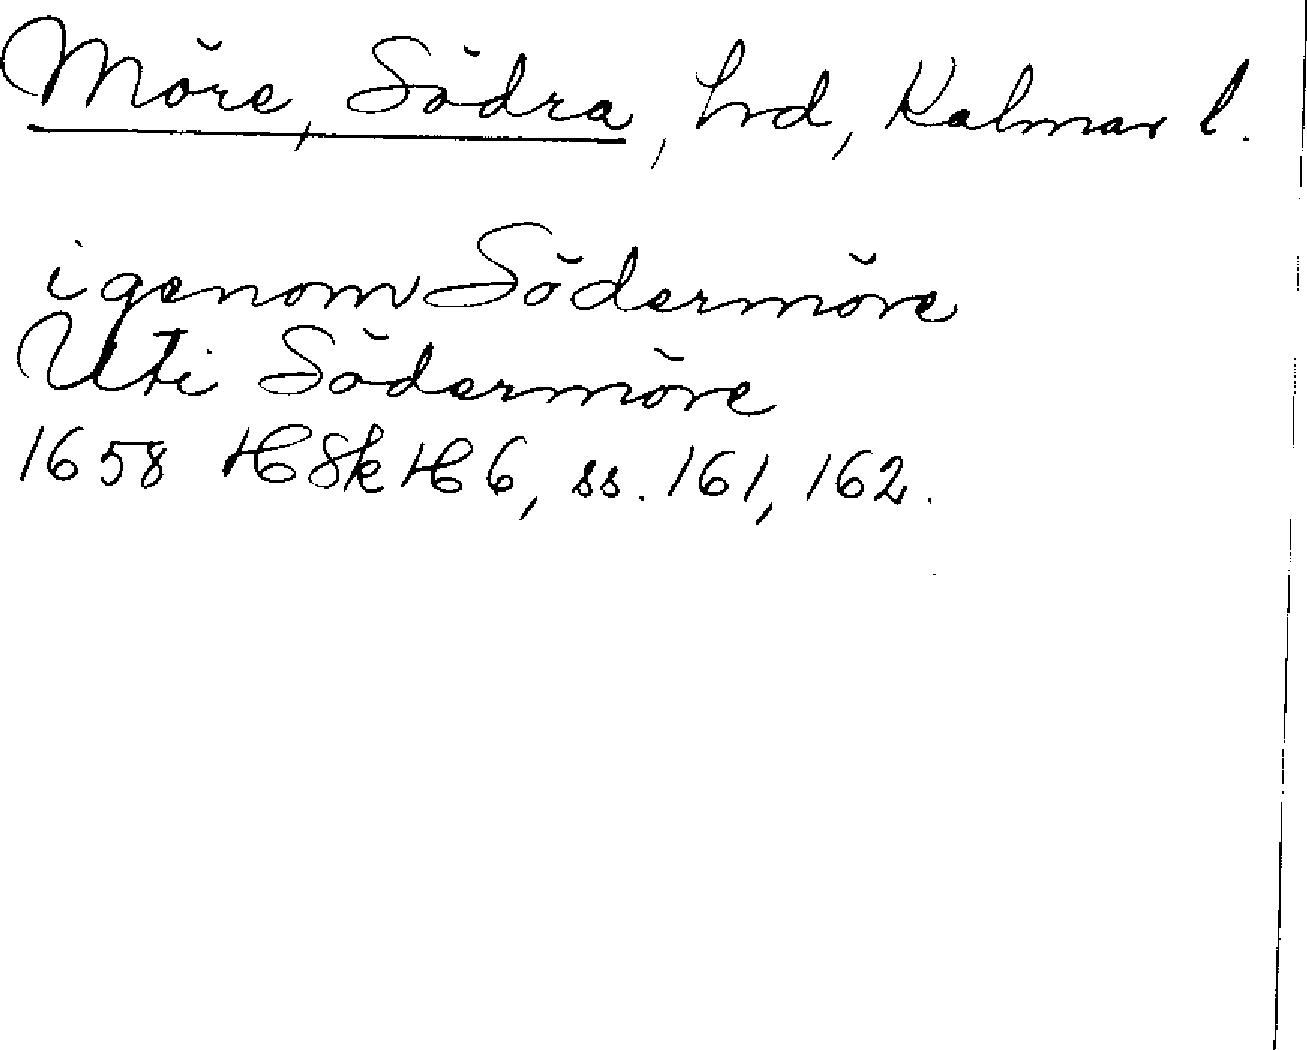 Möre, Södra, hrd, Kalmar l.
igenom Södermöre
Uti Södermöre
1658 HSkH 6, ss. 161, 162.